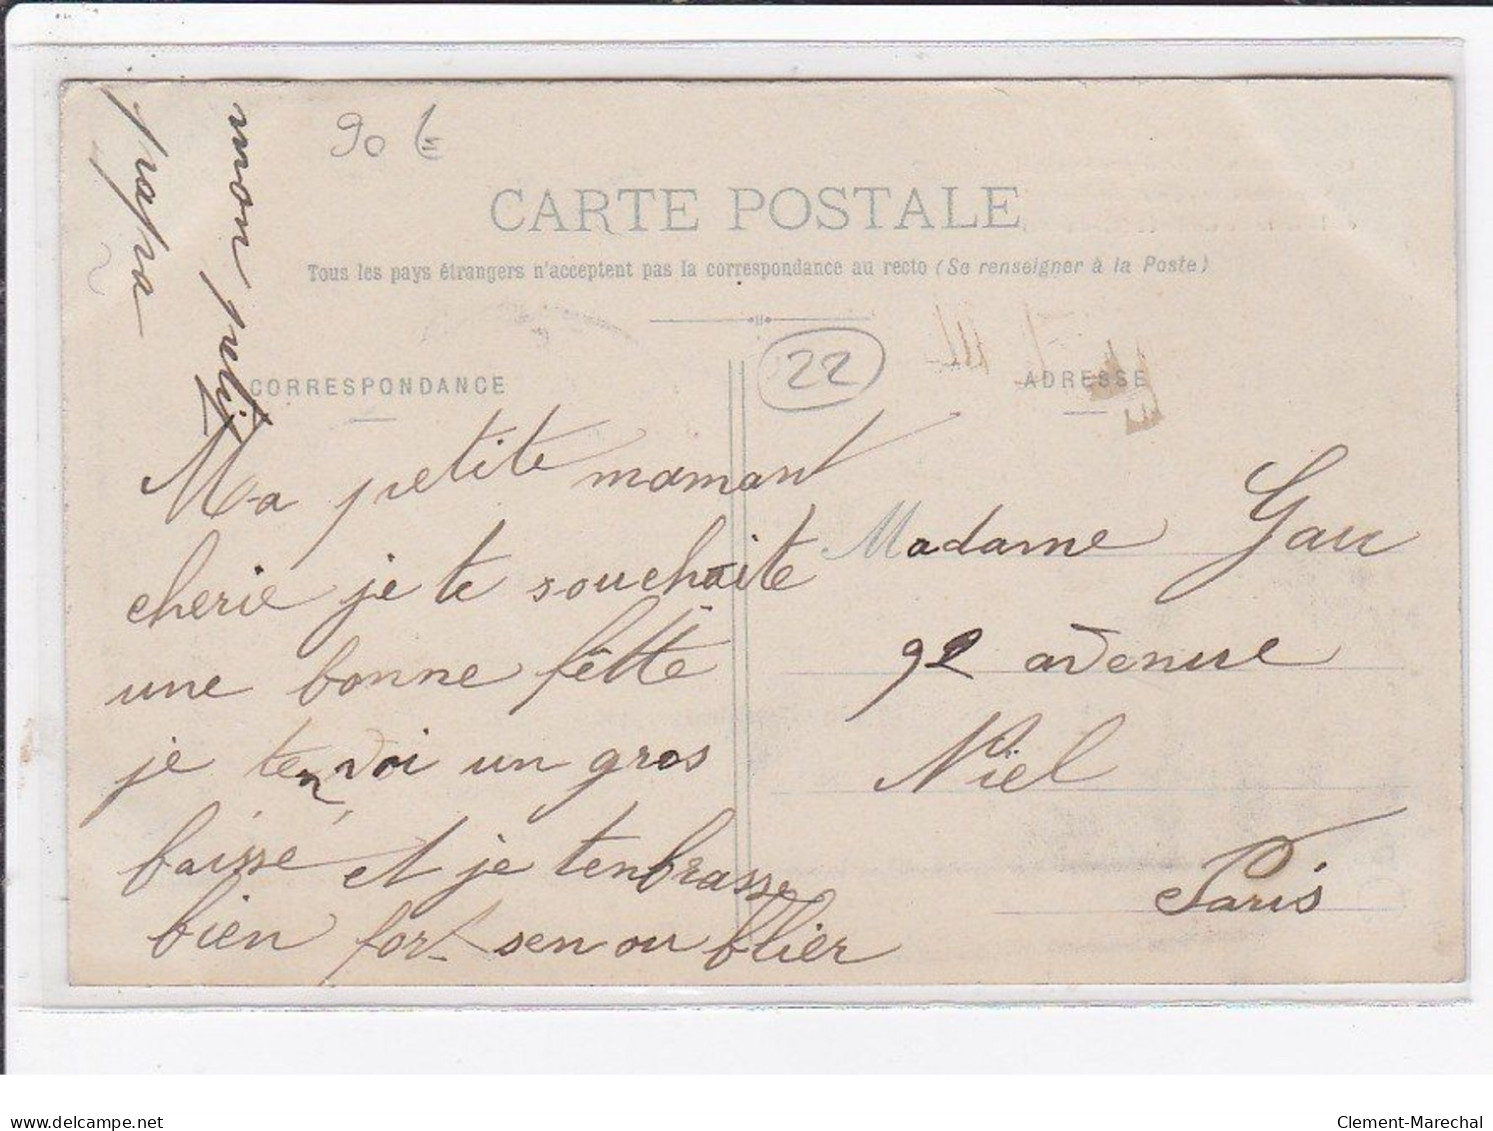 90 €
CARTE POSTALE
Tous les pays étrangers n'acceptent pas la correspondance au recto (Se renseigner à la Poste)
22
CORRESPONDANCE
ADRESSE
Ma petite maman
cherie je te souchaite
une bonne fêtte
je tenvoi un gros
baisse et je tenbrasse
bien fort sen ou blier
mon petit
papa
Madame Gau
92 avenue
Niel
Paris
delcampe.net
Clement-Marechal